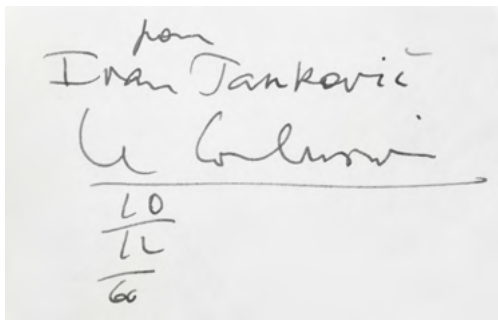 pour
Ivan Janković
Le Corbusier
10
12
60